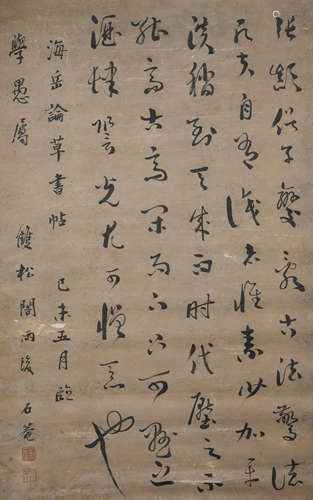 張顛俗子變亂古法驚諸
凡夫自有識者懷素少加平
淡稍到天成而时代壓之不
能高古高閑而下只可懸之
酒肆䛒光尤可憎惡也
海岳論草書帖 己未五月臨
學愚屬 雙松閣雨後 石菴